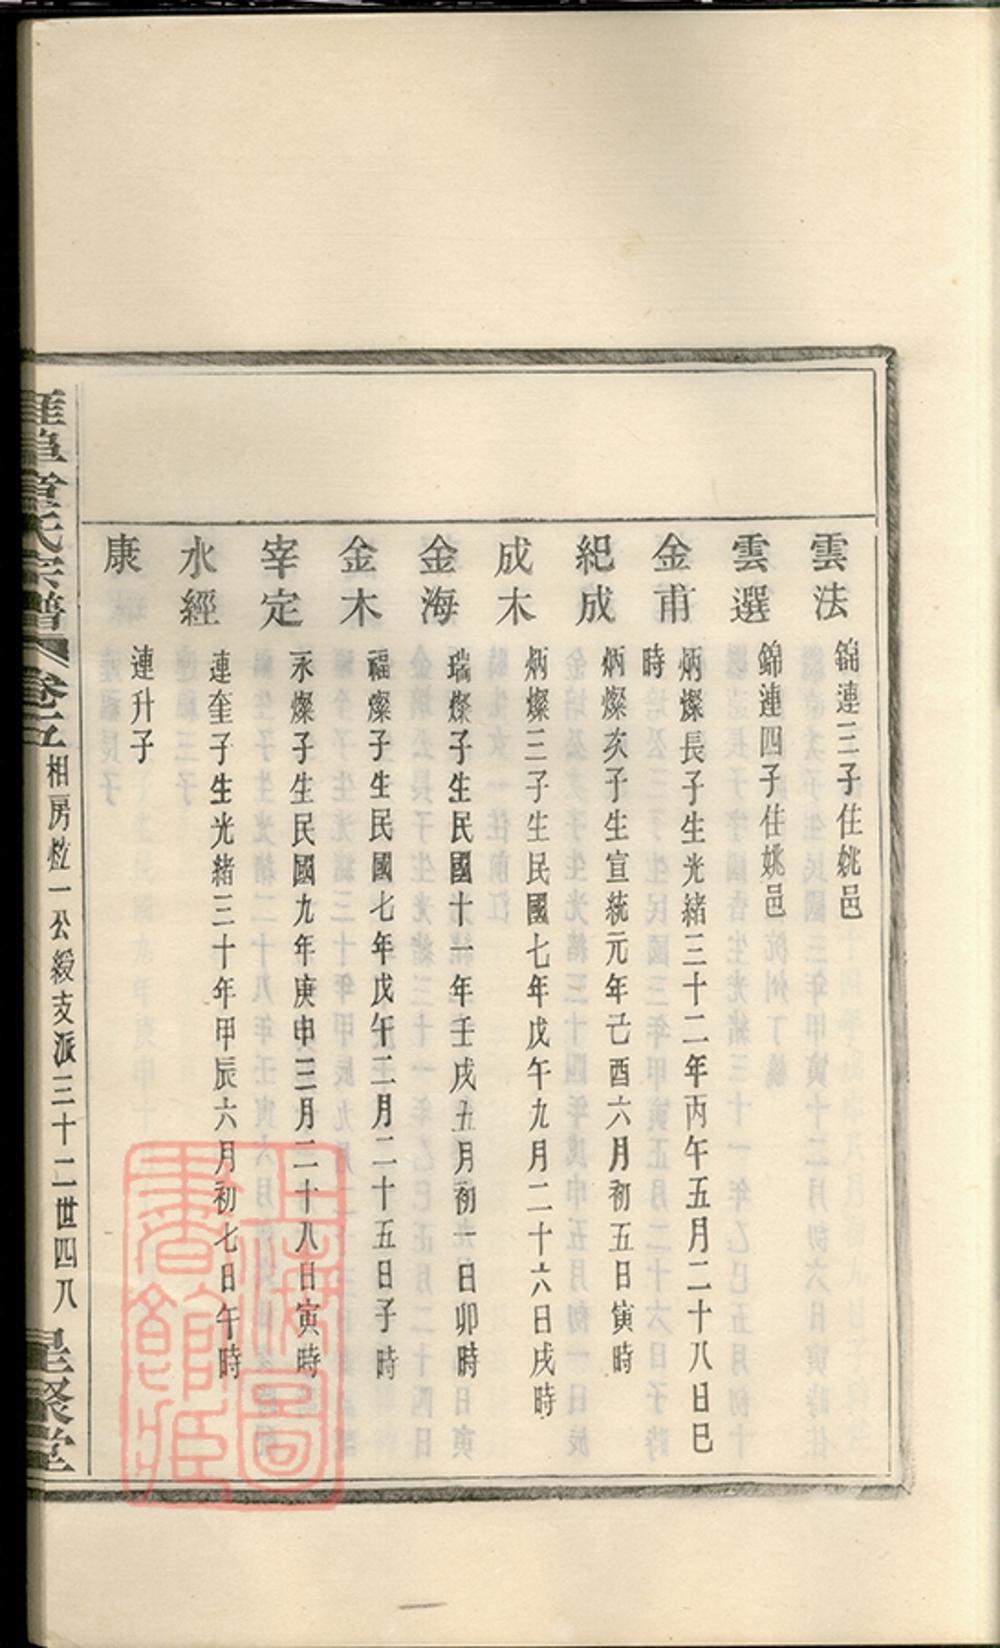 雲法 錦連三子住姚邑
雲選 錦連四子住姚邑
金甫 炳燦長子生光緒三十二年丙午五月二十八日巳
時
紀成 炳燦次子生宣統元年己酉六月初五日寅時
成木 炳燦三子生民國七年戊午九月二十六日戌時
金海 瑞燦子生民國十一年壬戌五月初一日卯時
金木 福燦子生民國七年戊午二月二十五日子時
宰定 永燦子生民國九年庚申三月二十八日寅時
水經 連奎子生光緒三十年甲辰六月初七日午時
康 連升子
氏宗譜 卷五 相房 一公緩支派三十二世四八 聚堂
上海圖書館藏